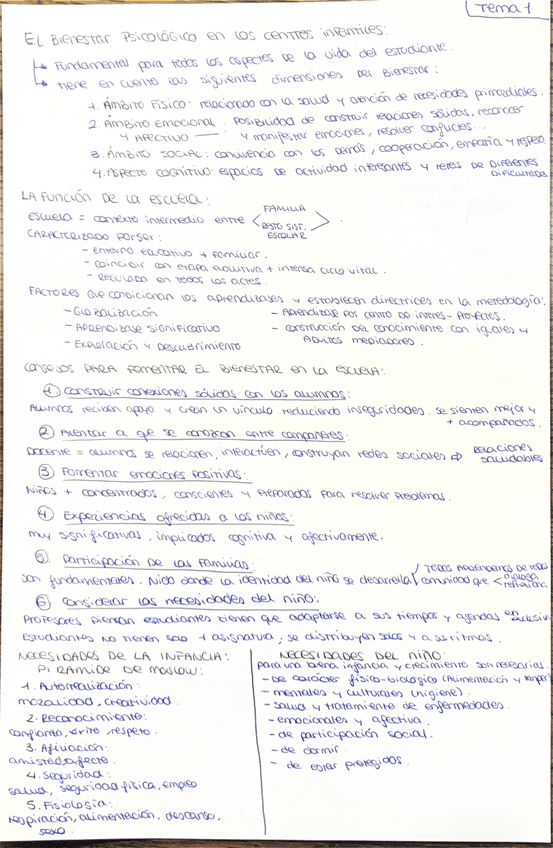 Tema 1
EL BIENESTAR PSICOLÓGICO EN LOS CENTROS INFANTILES:
Fundamental para todos los aspectos de la vida del estudiante.
tiene en cuenta las siguientes dimensiones del bienestar:
1. ÁMBITO FÍSICO: relacionado con la salud y atención de necesidades primordiales.
2. ÁMBITO EMOCIONAL Y AFECTIVO — Posibilidad de construir relaciones sólidas, reconocer
y manifestar emociones, resolver conflictos...
3. ÁMBITO SOCIAL: convivencia con los demás, cooperación, empatía y respeto
4. ASPECTO COGNITIVO: espacios de actividad interesantes y retos de diferentes
dificultades
LA FUNCIÓN DE LA ESCUELA:
ESCUELA = contexto intermedio entre < FAMILIA
RESTO SIST. ESCOLAR > .
CARACTERIZADO POR SER:
- Entorno educativo + familiar.
- Coincidir con etapa evolutiva + intensa ciclo vital.
- Regulada en todos los actos.
FACTORES que condicionan los aprendizajes y establecen directrices en la metodología:
- Globalización
- Aprendizaje por centro de interés - Proyectos.
- Aprendizaje significativo
- construcción del conocimiento con iguales y
- Exploración y descubrimiento
Adultos mediadores.
CONSEJOS PARA FOMENTAR EL BIENESTAR EN LA ESCUELA:
① Construir conexiones sólidas con los alumnos:
Alumnos reciben apoyo y crean un vínculo reduciendo inseguridades. Se sienten mejor y
+ acompañados.
② Alentar a que se conozcan entre compañeros:
Docente = alumnos se relacionen, interactúen, construyan redes sociales ⇒ Relaciones
saludables
③ Fomentar emociones positivas:
Niños + concentrados, conscientes y preparados para resolver problemas.
④ Experiencias ofrecidas a los niños:
muy significativas, implicados cognitiva y afectivamente.
⑤ Participación de las familias:
Son fundamentales. Nido donde la identidad del niño se desarrolla / TODOS APRENDEMOS DE TODO
comunidad que < dialoga
reflexiona
⑥ Considerar las necesidades del niño:
Profesores piensan estudiantes tienen que adaptarse a sus tiempos y agendas
Estudiantes no tienen solo 1 asignatura, se distribuyen solos y a su ritmos.
NECESIDADES DE LA INFANCIA:
PIRÁMIDE DE MASLOW:
1. Autorrealización:
moralidad, creatividad.
2. Reconocimiento:
confianza, éxito, respeto.
3. Afiliación:
amistad, afecto.
4. Seguridad:
salud, seguridad física, empleo
5. Fisiología:
respiración, alimentación, descanso,
sexo.
NECESIDADES DEL NIÑO:
Para una buena infancia y crecimiento son necesarias.
- De carácter físico-biológico (Alimentación y
- mentales y culturales (higiene).
- salud y tratamiento de enfermedades.
- emocionales y afectiva.
- de participación social.
- de dormir.
- de estar protegidos.